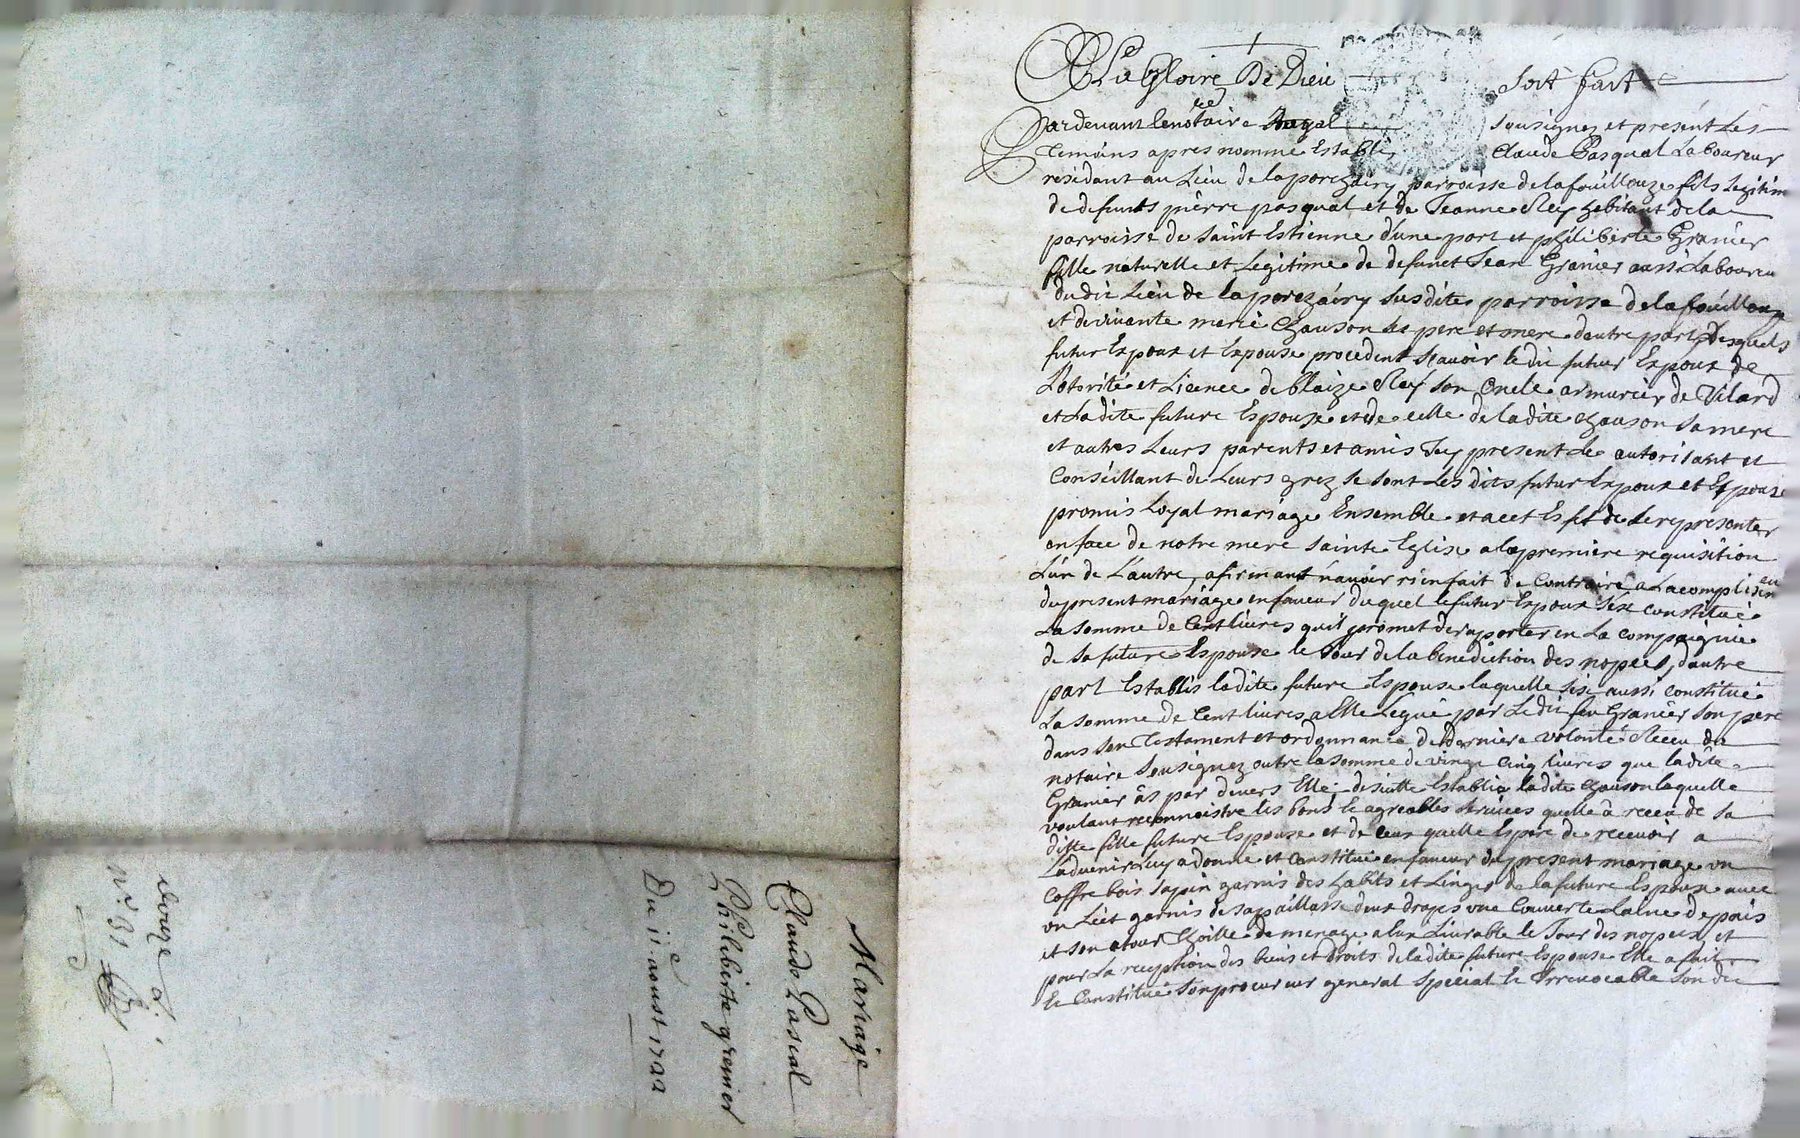 Mariage
Claude Pascal
Philiberte grenier
Du 11e aoust 1722
douze d.
n° 31
A La Gloire De Dieu Soit fait
Pardevant le notaire Royal sousignez et present Les
Temoins apres nommé Establi Claude Pasqual Laboureur
residant au Lieu de laporchairy parroisse delafoüillouze fils Legitim
de defunts pierre pasqual et de Jeanne Rey habitant dela
parroisse de saint Estienne d'une part et philiberte Granier
fille naturelle et Legitime de defunct Jean Granier aussi Laboureu
dudit Lieu de laporchairy susdite parroisse delafoüillouze
et de vivante marie Chauson ses pere et mere d'autre part Lesquels
futur Expoux et Expouse procedent sçavoir ledit futur Expoux de
L'otorité et Licence de blaize Rey son oncle armurier de Vilard
et Ladite future Espouse et de celle de ladite chauson sa mere
et autres Leurs parents et amis Jcy present Le autorisant et
Conseillant de Leurs grez se sont Les dits futur Expoux et Espouze
promis Loyal mariage Ensemble et a cet Esfet de se representer
en face de notre mere sainte Eglise alapremiere requisition
L'un de L'autre, afirmant n'avoir rien fait de Contraire a Lacomplisem en
dupresent mariage enfaveur duquel le futur Expoux s'est constitué
La somme de Cent livres quil promet deraporter en La compaignie
de sa future Espouse le Jour de la benediction des nopces, d'autre
part Establis ladite future Espouse laquelle s'est aussi constitué
La somme de Cent livres a Elle Legué par Ledit feu Granier son pere
dans son Testament et ordonnance de derniere volonté Receu du
notaire sousignez outre la somme de vingt cinq livres que ladite
Granier âs par devers Elle, desuitte Establie ladite chauson laquelle
voulant reconnoistre les bons et agreables services quelle â receu de sa
ditte fille future Espouse et de ceux quelle Espere de recevoir a
Ladvenir Luy a donné et constitué enfaveur dupresent mariage un
coffre bois sapin garnis des habits et Linges de lafuture Espouse avec
un Liet garnis de sapaillasse deux draps une Couverte Laine depais
et son atour Thoille de menage a lun Livrable le Jour des nopces et
pour La reception des biens et droits deladite future Espouse Elle a fait
et Constitué sonprocureur general special et Irrevocable son dit